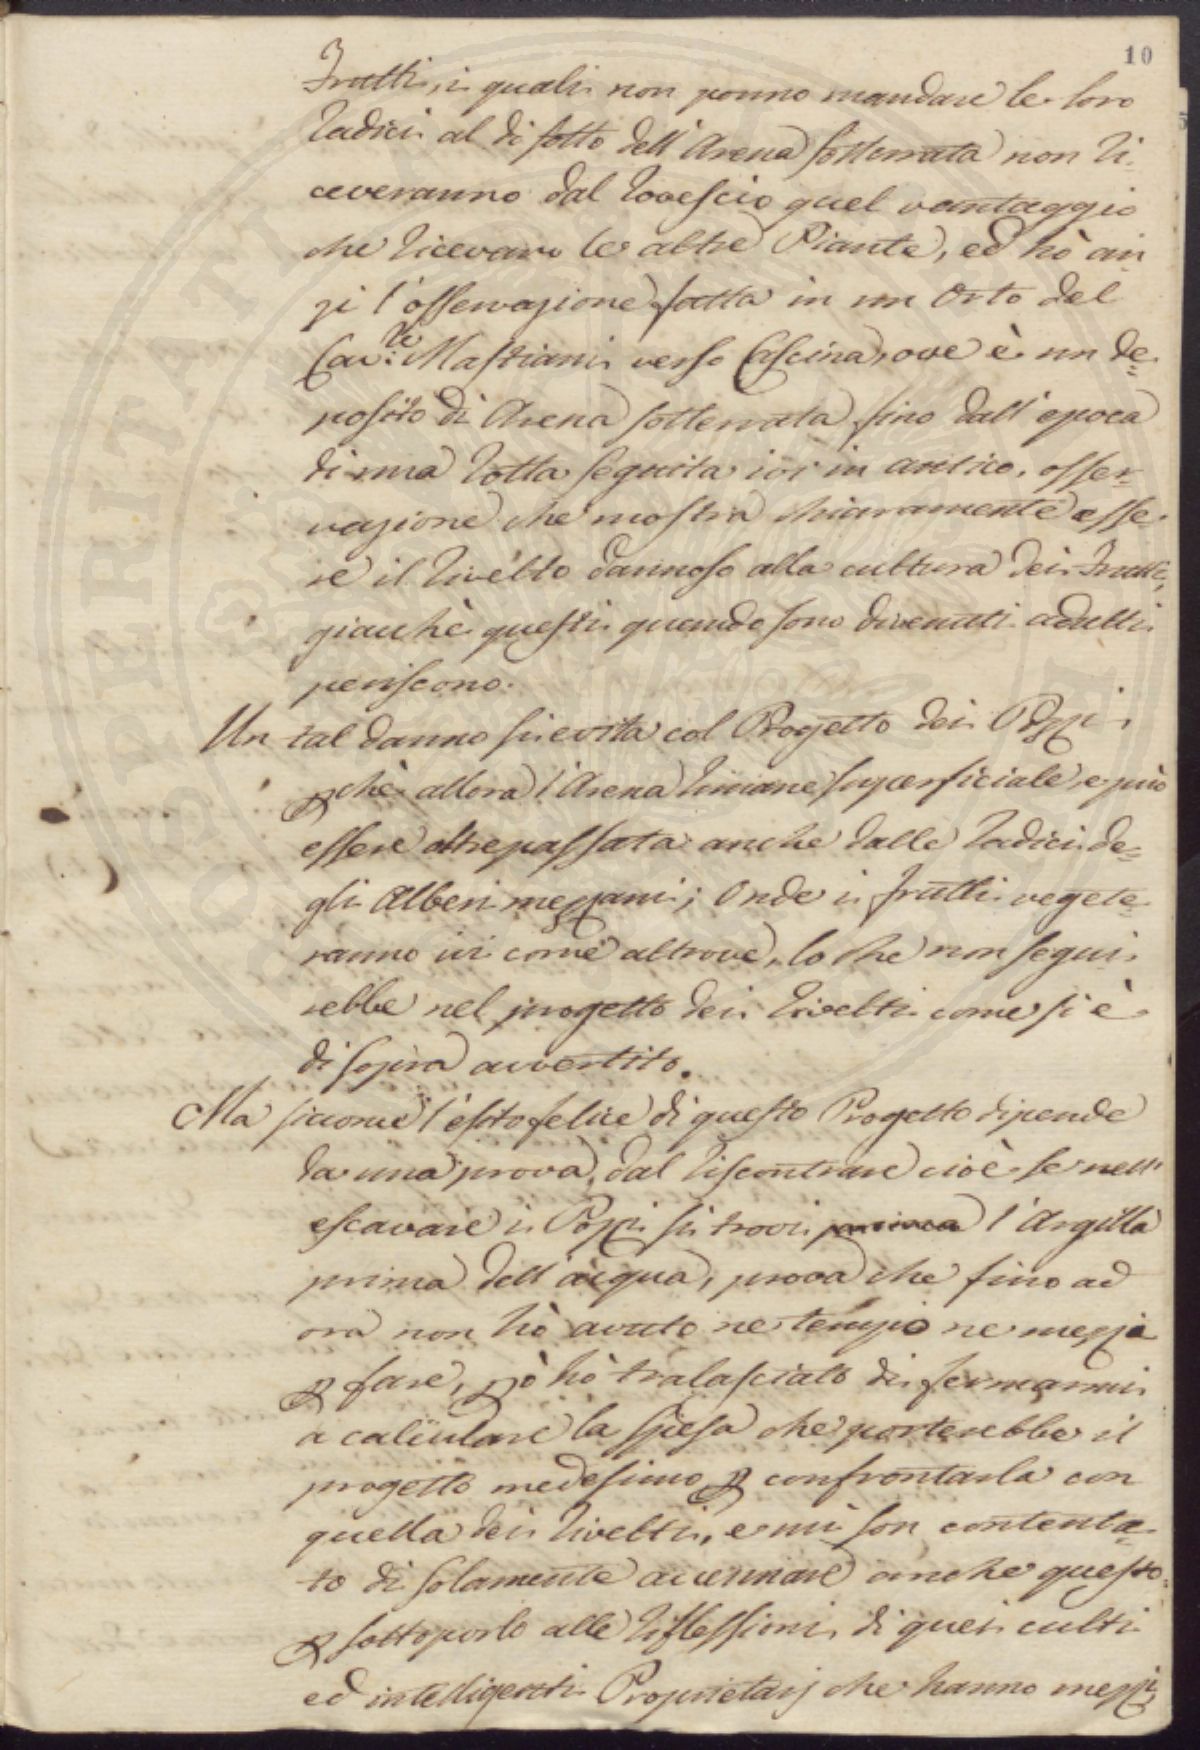 10
Frutti, i quali non ponno mandare le loro
Radici al di sotto dell'Arena sotterrata non ri-
ceveranno dal Rovescio quel vantaggio
che ricevano le altre Piante, ed hò an-
zi l'osservazione fatta in un Orto del
Cav:re Mastiani verso Cascina, ove è un de=
posito di Arena sotterrata fino dall'epoca
di una Rotta seguita ivi in antico, osser-
vazione che mostra chiaramente esse-
re il Rivelto dannoso alla cultura dei Frutti,
giacchè questi quando sono divenuti adulti
periscono.
Un tal danno si evita col Progetto dei Pozzi
pchè allora l'Arena rimane superficiale, e può
essere oltrepassata anche dalle Radici de=
gli Alberi mezzani; Onde i frutti vegete-
ranno ivi come altrove, lo che non segui-
rebbe nel progetto dei Rivelti come si è
di sopra avvertito.
Ma siccome l'esito felice di questo Progetto dipende
da una prova, dal riscontrare cioè se nell'
escavare i Pozzi si trovi l'Argilla
prima dell'acqua, prova che fino ad
ora non hò avuto ne tempo ne mezzi
p fare, pò hò tralasciato di fermarmi
a calculare la spesa che porterebbe il
progetto medesimo p confrontarla con
quella dei Rivelti, e mi son contenta-
to di solamente accennare anche questo
p sottoporlo alle riflessioni di quei culti
ed intelligenti Proprietarj che hanno mezzi